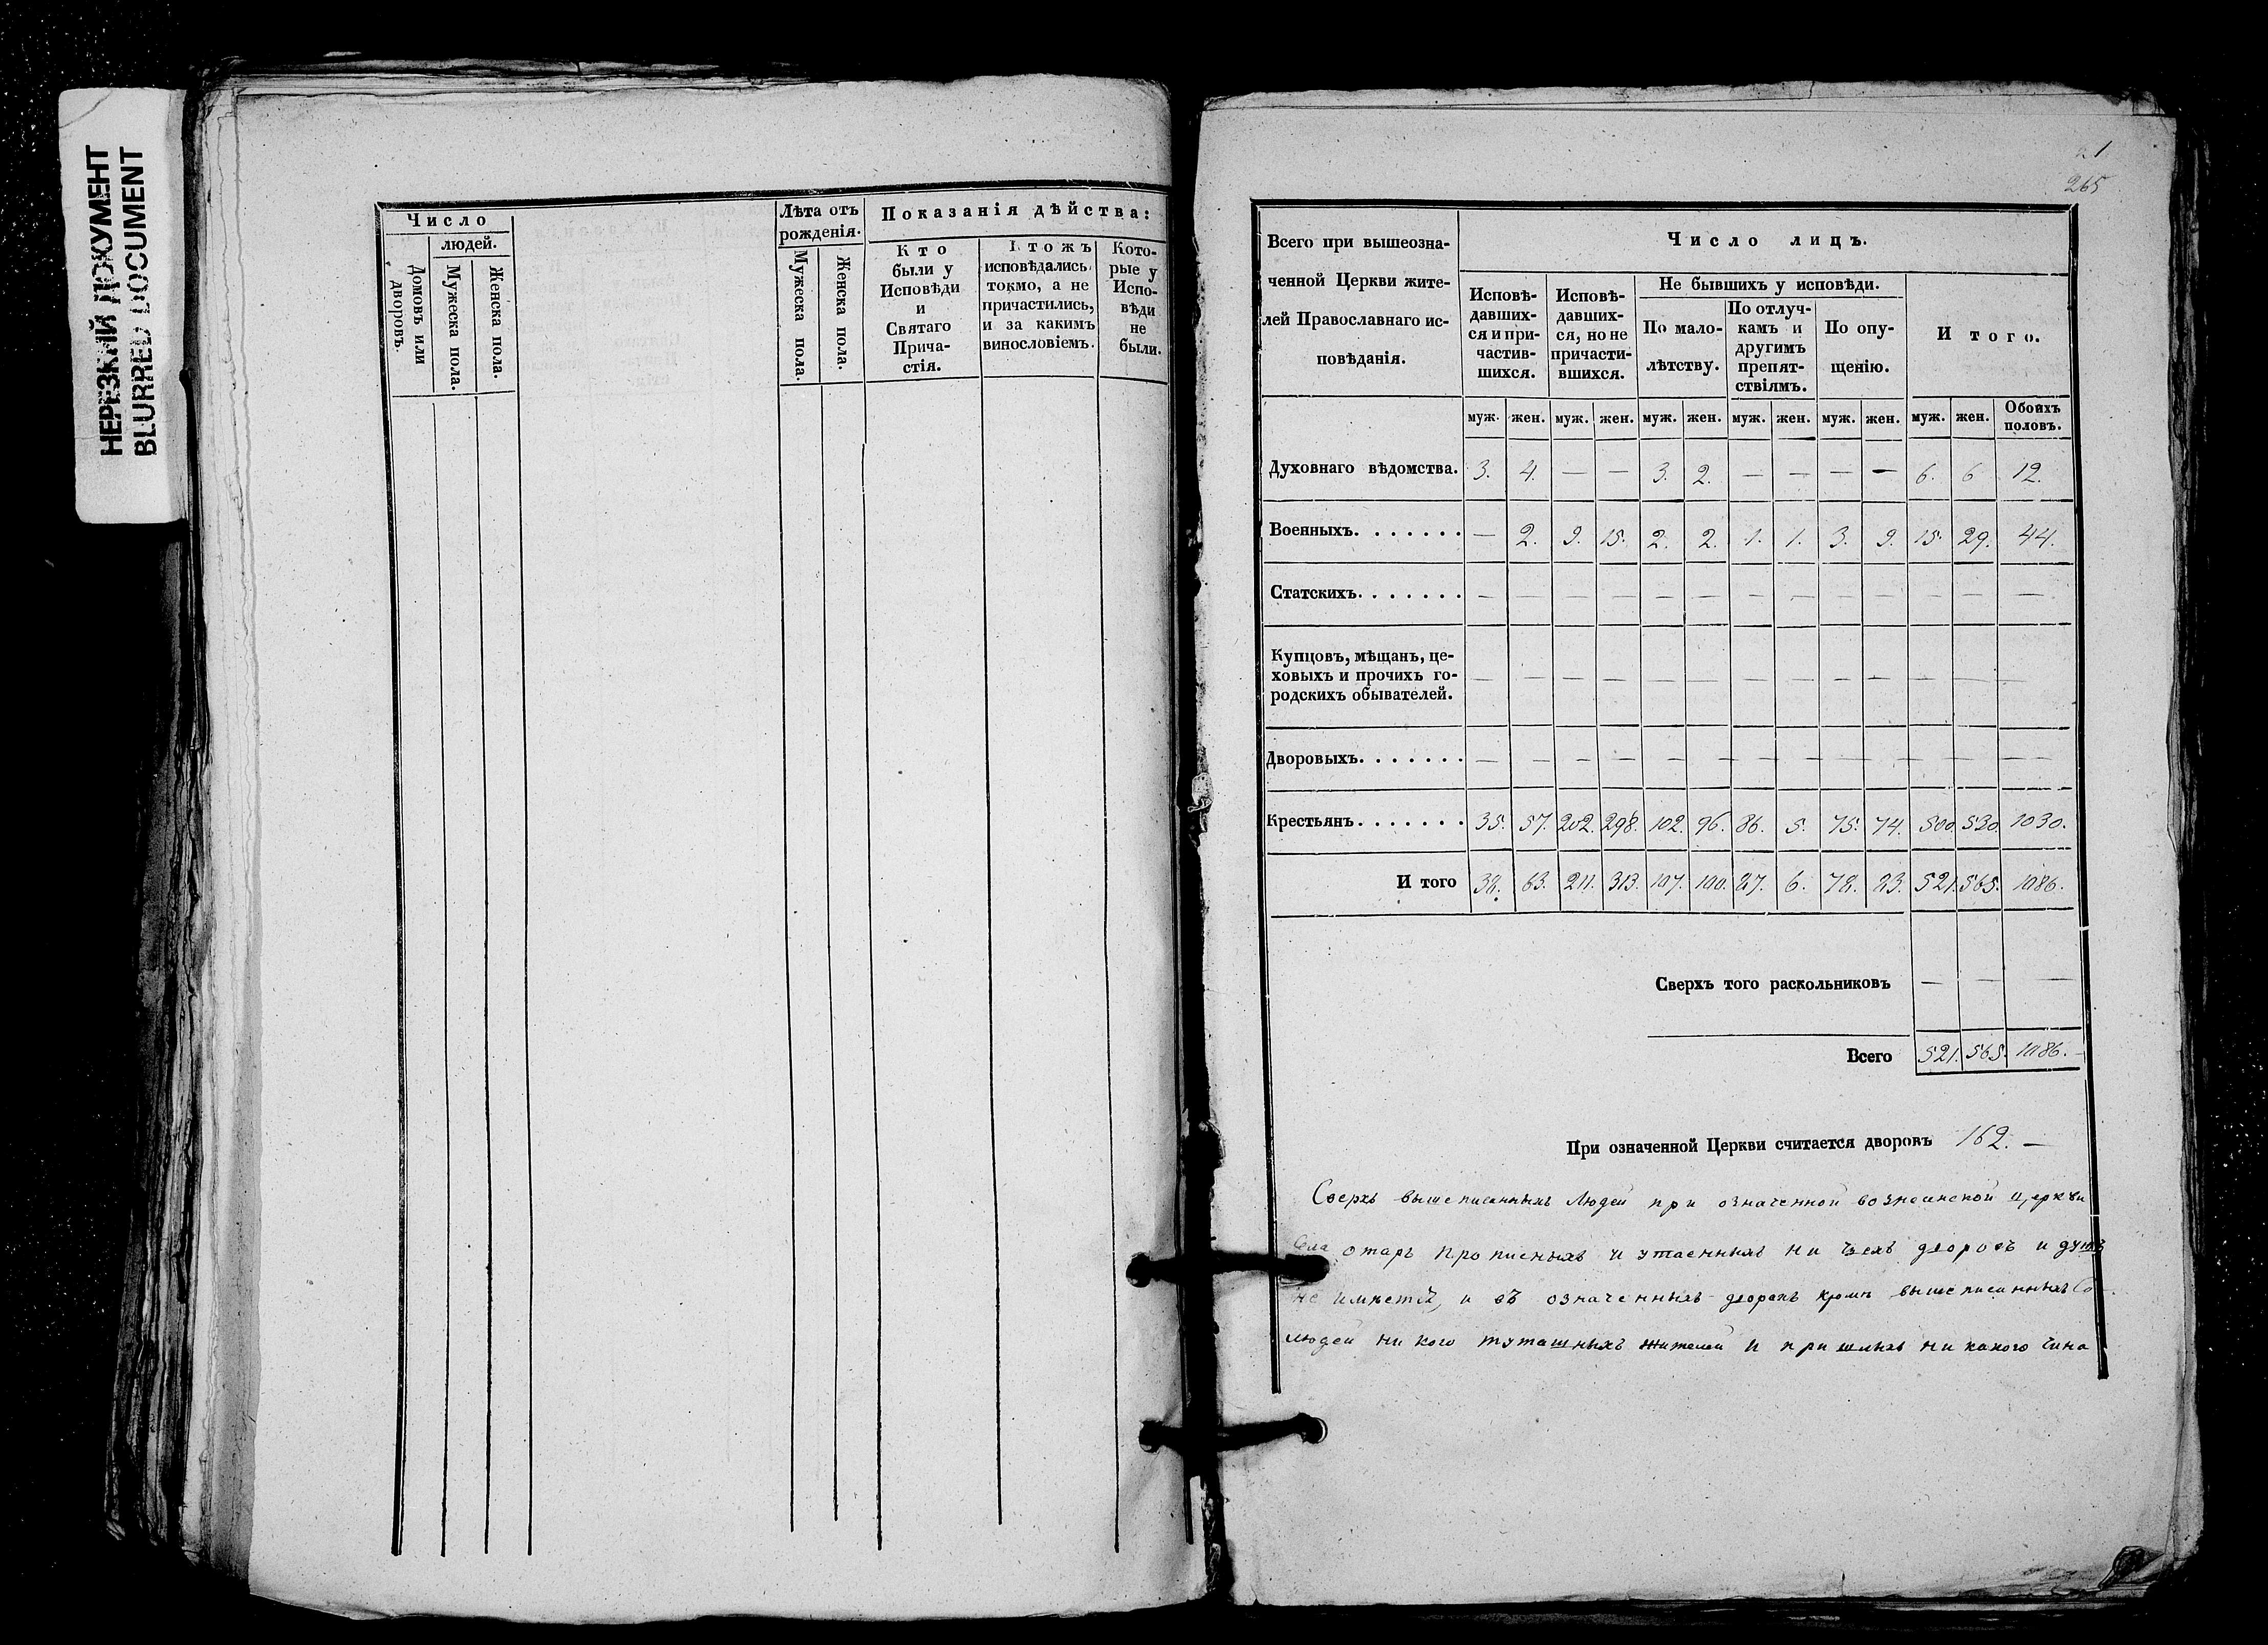 НЕРЕЗКИЙ ДОКУМЕНТ
BLURRED DOCUMENT
Число
людей.
Домовъ или дворовъ.
Мужеска пола.
Женска пола.
Лѣта отъ рожденія.
Мужеска пола.
Женска пола.
Показанія дѣйства:
Кто
были у
Исповѣди
и
Святаго
Прича-
стія.
тожъ
исповѣдались
токмо, а не
причастились,
и за какимъ
винословіемъ.
Кото-
рые у
Испо-
вѣди
не
были.
265
Всего при вышеозна-
ченной Церкви жите-
лей Православнаго ис-
повѣданія.
Число лицъ.
Исповѣ-
давших-
ся и при-
частив-
шихся.
Исповѣ-
давших-
ся, но не
причасти-
вшихся.
Не бывшихъ у исповѣди.
По мало-
лѣтству.
По отлуч-
камъ и
другимъ
препят-
ствіямъ.
По опу-
щенію.
И того.
муж. жен. муж. жен. муж. жен. муж. жен. муж. жен. муж. жен. Обоихъ половъ.
Духовнаго вѣдомства. 3. 4. — — 3. 2. — — — — 6. 6 12.
Военныхъ. . . . . . . — 2. 9. 15. 2. 2. 1. 1. 3. 9. 15. 29. 44.
Статскихъ. . . . . . . — — — — — — — — — — — — —
Купцовъ, мѣщанъ, це-
ховыхъ и прочихъ го-
родскихъ обывателей. — — — — — — — — — — — — —
Дворовыхъ. . . . . . . — — — — — — — — — — — — —
Крестьянъ. . . . . . . 35. 57. 202. 298. 102. 96. 86. 5. 75. 74. 500. 530. 1030.
И того 38. 63. 211. 313. 107. 100. 87. 6. 78. 83. 521. 565. 1086.
Сверхъ того раскольниковъ — — —
Всего 521. 565. 1086. —
При означенной Церкви считается дворовъ 162. —
Сверхъ вышеписанныхъ людей при означенной вознесенской церкви
Села отаръ прописныхъ и утаенныхъ ни чьихъ дворовъ и душъ
не имѣется, и въ означенныхъ дворахъ кромѣ вышеписанныхъ
людей ни кого туташныхъ жителей и пришлыхъ ни какого чина